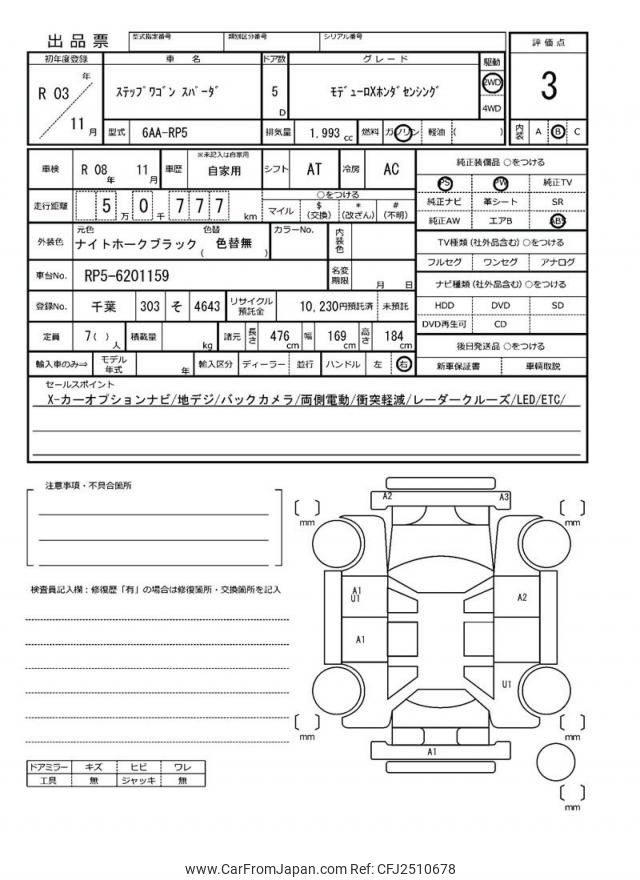 出品票 型式指定番号 類別区分番号 シリアル番号
評価点
3
内装 A B C
初年度登録 車名 ドア数 グレード 駆動
R 03 年 11 月
ステップワゴン スパーダ 5 D モデューロXホンダセンシング 2WD 4WD
型式 6AA-RP5 排気量 1.993 cc 燃料 ガソリン 軽油 ( )
車検 R 08 年 11 月 車歴 ※未記入は自家用 自家用 シフト AT 冷房 AC
走行距離 5 万 0 千 7 7 7 km ○をつける
マイル $ (交換) * (改ざん) # (不明)
外装色 元色 ナイトホークブラック 色替 ( 色替無 ) カラーNo. 内装色
車台No. RP5-6201159 名変期限 月 日
登録No. 千葉 303 そ 4643 リサイクル預託金 10,230円預託済 未預託
定員 7 ( ) 人 積載量 kg 諸元 長さ 476 cm 幅 169 cm 高さ 184 cm
輸入車のみ⇒ モデル年式 年 輸入区分 ディーラー 並行 ハンドル 左 右
純正装備品 ○をつける
PS PW 純正TV
純正ナビ 革シート SR
純正AW エアB ABS
TV種類 (社外品含む) ○をつける
フルセグ ワンセグ アナログ
ナビ種類 (社外品含む) ○をつける
HDD DVD SD
DVD再生可 CD
後日発送品 ○をつける
新車保証書 車輌取説
セールスポイント
X-カーオプションナビ/地デジ/バックカメラ/両側電動/衝突軽減/レーダークルーズ/LED/ETC/
注意事項・不具合箇所
検査員記入欄：修復歴「有」の場合は修復箇所・交換箇所を記入
A2 A3
mm mm
A1
U1
A2
A1
U1
mm mm
A1
mm
ドアミラー キズ ヒビ ワレ
工具 無 ジャッキ 無
www.CarFromJapan.com Ref: CFJ2510678